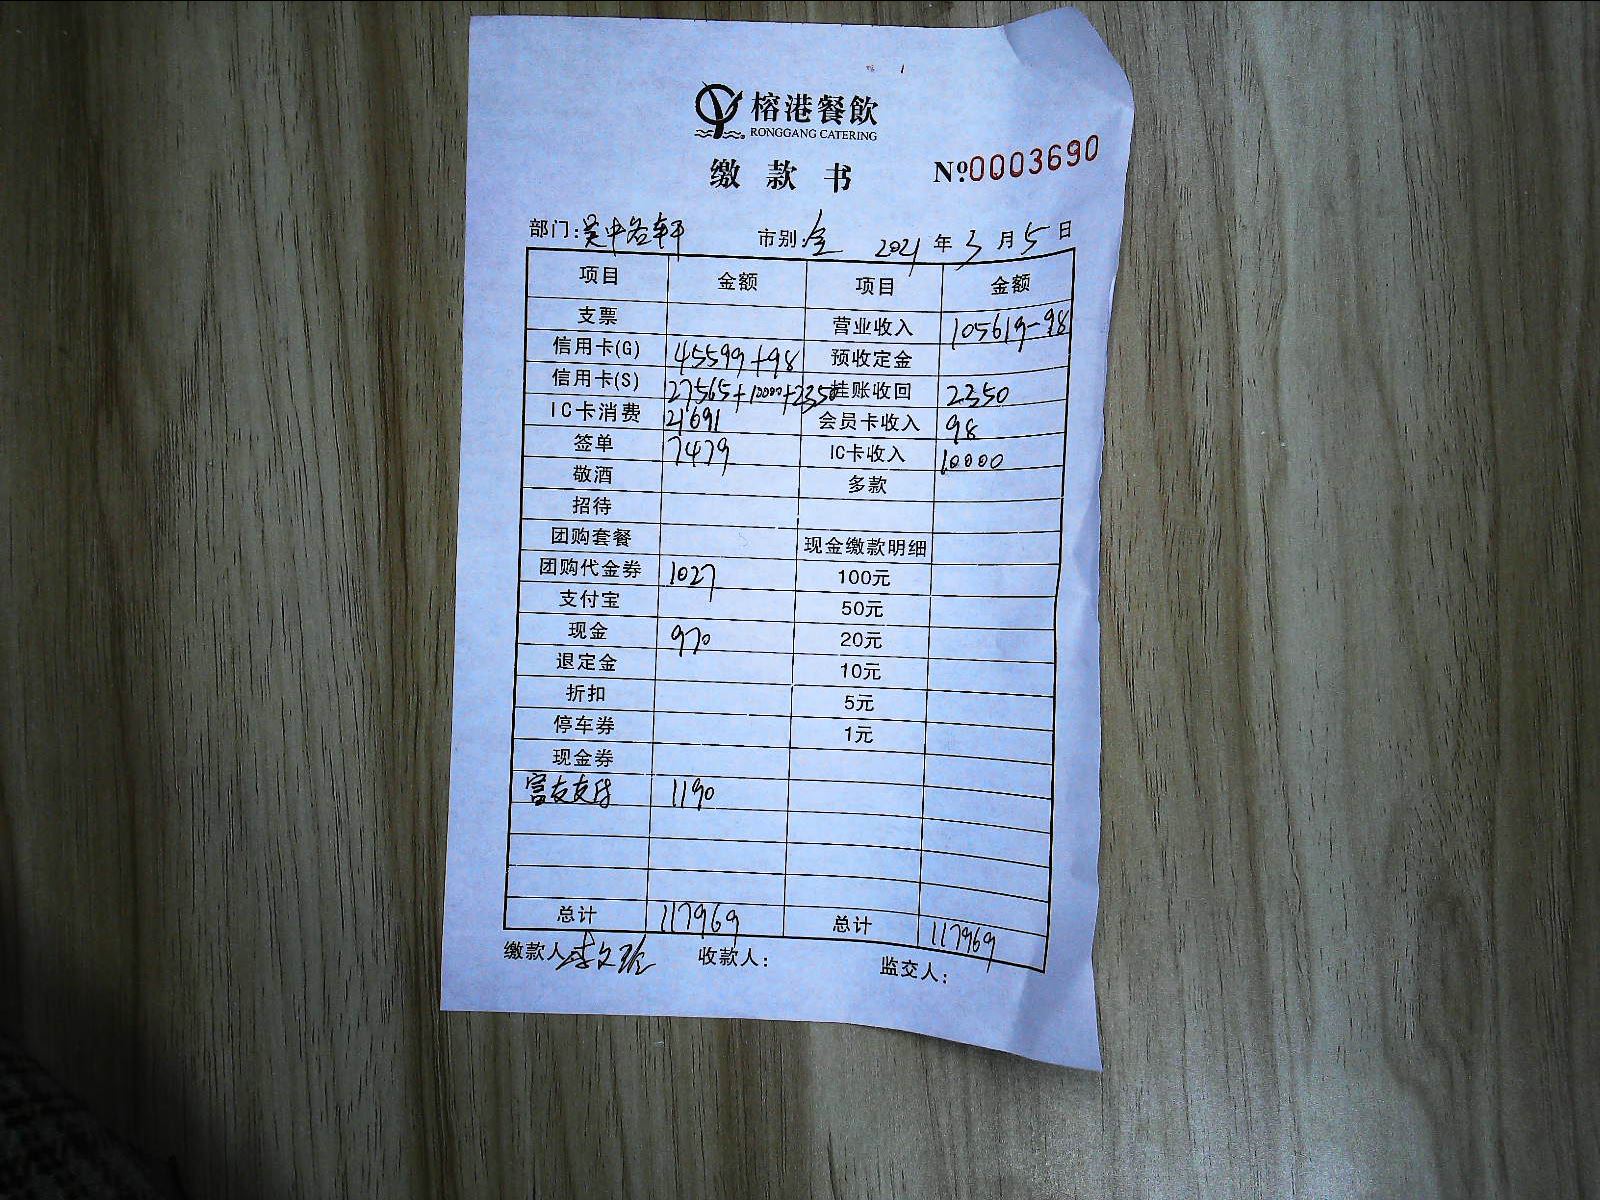 榕港餐飲
RONGGANG CATERING
缴款书 №0003690
部门:吴中名轩 市别:全 2021年3月5日
项目 金额 项目 金额
支票 营业收入 105619-98
信用卡(G) 45599+98 预收定金
信用卡(S) 27565+10000+2350 挂账收回 2350
IC卡消费 21691 会员卡收入 98
签单 7479 IC卡收入 10000
敬酒 多款
招待
团购套餐 现金缴款明细
团购代金券 1027 100元
支付宝 50元
现金 970 20元
退定金 10元
折扣 5元
停车券 1元
现金券
富友支付 1190
总计 117969 总计 117969
缴款人 李文 收款人: 监交人: